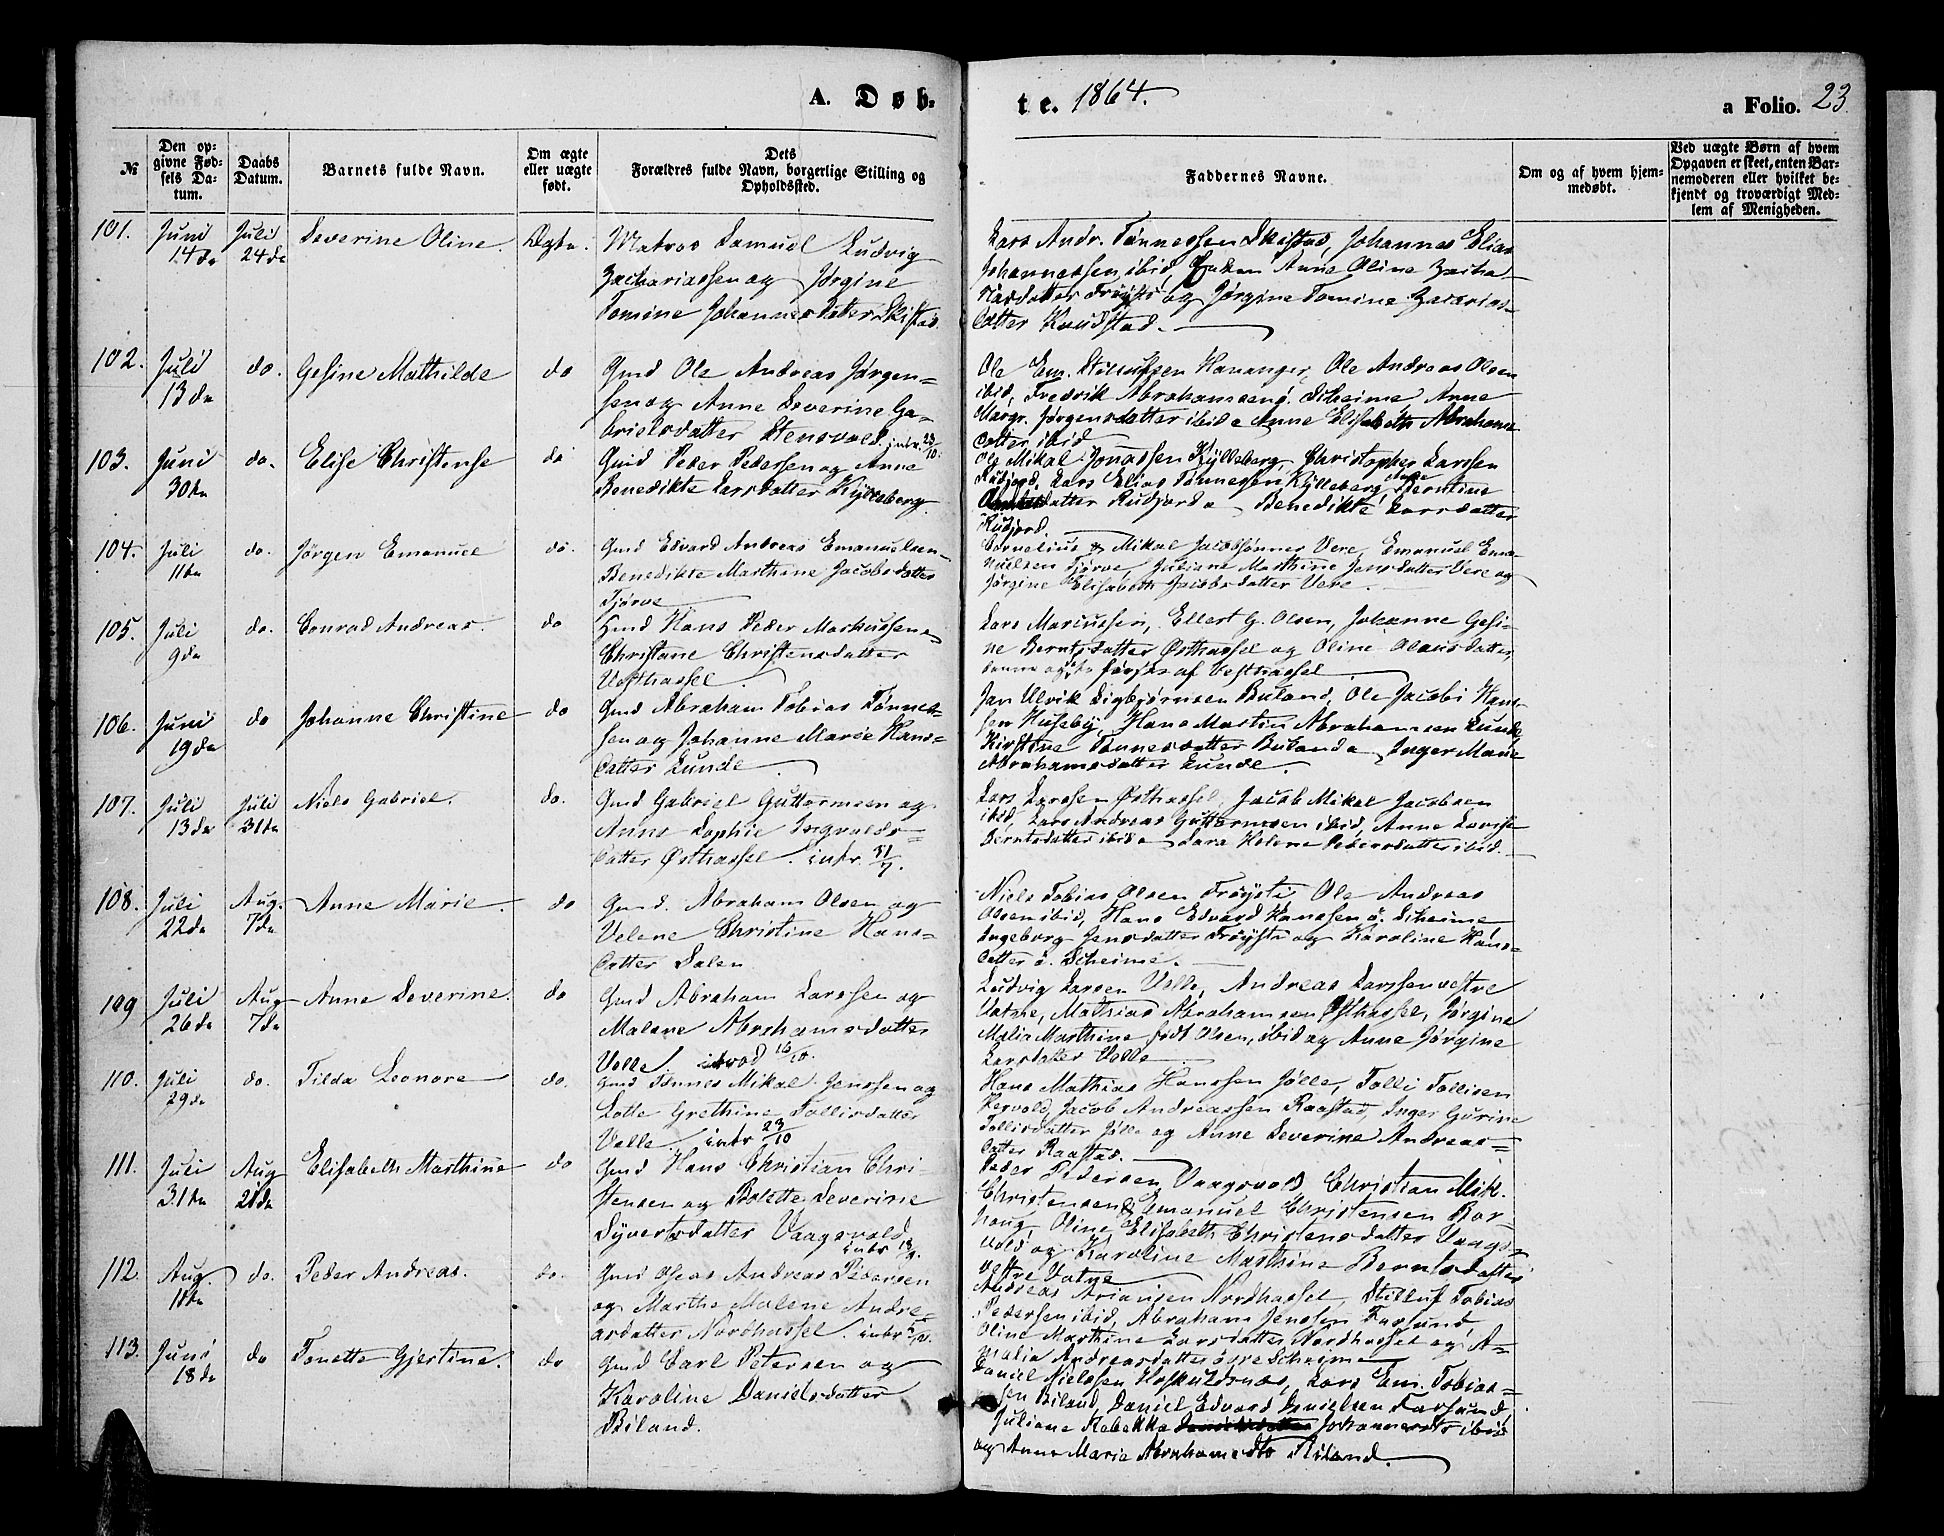 A. Døb-
te. 1864.
a Folio. 23
№
Den op-
givne Fød-
sels Da-
tum.
Daabs
Datum.
Barnets fulde Navn.
Om ægte
eller uægte
født.
Dets
Forældres fulde Navn, borgerlige Stilling og
Opholdssted.
Faddernes Navne.
Om og af hvem hjem-
medøbt.
Ved uægte Børn af hvem
Opgaven er skeet, enten Bar-
nemoderen eller hvilket be-
kjendt og troværdigt Med-
lem af Menigheden.
101. Juni 14de Juli 24de Severine Oline. Ægte.
Matros Samuel Ludvig
Zachariassen og Jørgine
Tomine Johannesdatter Skistad.
Lars Andr. Tønnessen Skistad, Johannes Elias
Johannessen ibid, Enken Anne Oline Zacha-
riasdatter Frøyste og Jørgine Tomine Zacarias-
datter Knudstad.
102. Juli 13de do. Gesine Mathilde do
Gmd Ole Andreas Jørgen-
sen og Anne Severine Ga-
brielsdatter Stensvold. intr. 23/10.
Ole Em. Hananger, Ole Andreas Olsen
ibid, Fredrik Abrahamsen ø. Scheime Anne
Margr. Jørgensdatter ibid & Anne Elisabeth Abrahams-
datter ibid
103. Juni 30te do. Elise Christense do
Gmd Peder Pedersen og Anne
Benedikte Larsdatter Kylleberg.
Ole Mikal Jonassen Kylleberg, Christopher Larssen
Rudjord, Lars Elias Tønnesen Kylleberg, Berntine
datter Rudjord & Benedikte Larsdatter
Rudjord.
104. Juli 11te do. Jørgen Emanuel do.
Gmd Edvard Andreas Emanuelsen
Benedikte Marthine Jacobsdatter
Tjørve
Cornelius & Mikal Jacobsønner Vere, Emanuel Ema-
nuelsen Tjørve, Juliane Marthine Jensdatter Vere og
Jørgine Elisabeth Jacobsdatter Vere.
105. Juli 9de do. Conrad Andreas. do
Gmd Hans Peder Markussen &
Christane Christensdatter
Vesthassel
Lars Marcussen, Ellert G. Olsen, Johanne Gesi-
ne Berntsdatter Østhassel og Oline Olausdatter,
af Vesthassel
106. Juni 19de do Johanne Christine do
Gmd Abraham Tobias Tønnes-
sen og Johanne Marie Hans-
datter Lunde
Jan Ulrik Sigbjørnsen Buland, Ole Jacobi Hans-
sen Huseby, Hans Martin Abrahamsen Lunde,
Kirstine Tønnesdatter Buland & Inger Marie
Abrahamsdatter Lunde.
107. Juli 13de Juli 31te Niels Gabriel. do.
Gmd Gabriel Guttormsen og
Anne Sophie Ingvalds-
datter Østhassel. intr. 31/7.
Lars Larssen Østhassel, Jacob Mikal Jacobsen
ibid, Lars Andreas Guttormsen ibid, Anne Lovise
Berntsdatter ibid & Sara Helene Pedersdatter ibid.
108. Juli 22de Aug. 7de Anne Marie. do
Gmd. Abraham Olsen og
Velene Christine Hans-
datter Dalen
Niels Tobias Olsen Frøyste Ole Andreas
Olsen ibid, Hans Edvard Hanssen ø. Scheime
Ingeborg Jensdatter Frøyste og Karoline Hans-
datter ø. Scheime.
109 Juli 26de Aug 7de Anne Severine. do
Gmd Abraham Larssen og
Malene Abrahamsdatter
Velle. introd 16/10.
Ludvig Larsen Velle, Andreas Larssen vestre
Vatne, Mathias Abrahamsen Østhassel, Jørgine
Malia Marthine født Olsen, ibid og Anne Jørgine
Larsdatter Velle
110. Juli 29de do. Tilda Leonore do.
Gmd Tønnes Mikal Jenssen og
Lotte Grethine Tollisdatter
Velle. intr 23/10
Hans Mathias Hanssen Jølle, Tolli Tollisen
Hervold, Jacob Andreassen Raastad, Inger Gurine
Tollisdatter Jølle og Anne Severine Andreas-
datter Raastad.
111. Juli 31te Aug 21de Elisabeth Marthine do
Gmd Hans Christian Chri-
stensen og Bolette Severine
Syvertsdatter Vaagsvold
intr
Peder Pedersen Vaagsvold Christian Mik.
Christensen & Emanuel Christensen Bor-
houg, Oline Elisabeth Christensdatter Vaags-
vold og Karoline Marthine Berntsdatter
vestre Vatne
112. Aug. 11te do. Peder Andreas. do.
Gmd Oseas Andreas Pedersen
og Marthe Malene Andre-
asdatter Nordhassel. intr
Andreas Ariansen Nordhassel, Stilluf Tobias
Pedersen ibid, Abraham Jenssen Farsund,
Oline Marthine Larsdatter Nordhassel og A-
malia Andreasdatter øvre Scheime
113. Juni 18de do Tonette Gjertine. do
Gmd Carl Petersen og
Karoline Danielsdatter
Biland.
Daniel Nielssen Høskuldsnæs, Lars Em. Tobias-
sen Biland, Daniel Edvard Danielsen Farsund
Juliane Rebekka Johannesdtr ibid
og Anne Marie Abrahamsdtr Biland.